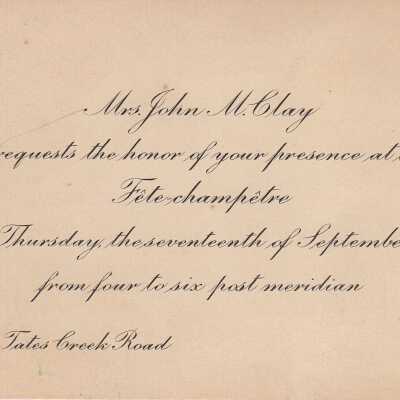 Mrs. John M. Clay
requests the honor of your presence at
Fête-champêtre
Thursday, the seventeenth of Septembe
from four to six post meridian
Tates Creek Road